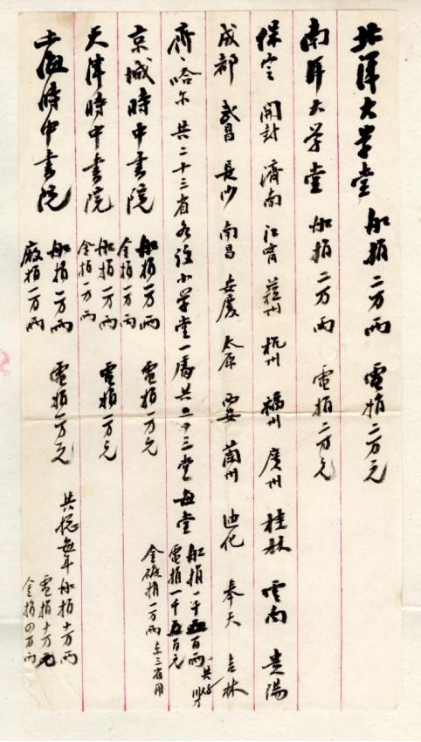 北洋大學堂 船捐二万两 電捐二万元
南洋大学堂 船捐二万两 電捐二万元
保定 開封 濟南 江甯 蘇州 杭州 福州 廣州 桂林 雲南 貴陽
成都 武昌 長沙 南昌 安慶 太原 西安 蘭州 迪化 奉天 吉林
齊哈尔 共二十三省各設小学堂一所共二十三堂每堂
船捐一千五百两
電捐一千五百元
金礦捐一万两 東三省用
京城時中書院 船捐一万两 電捐一万元
金捐一万两
天津時中書院 船捐一万两 電捐一万元
金捐一万两
上海時中書院 船捐一万两 電捐一万元
廠捐一万两
共總每年船捐十万两
電捐十万元
金捐四万两